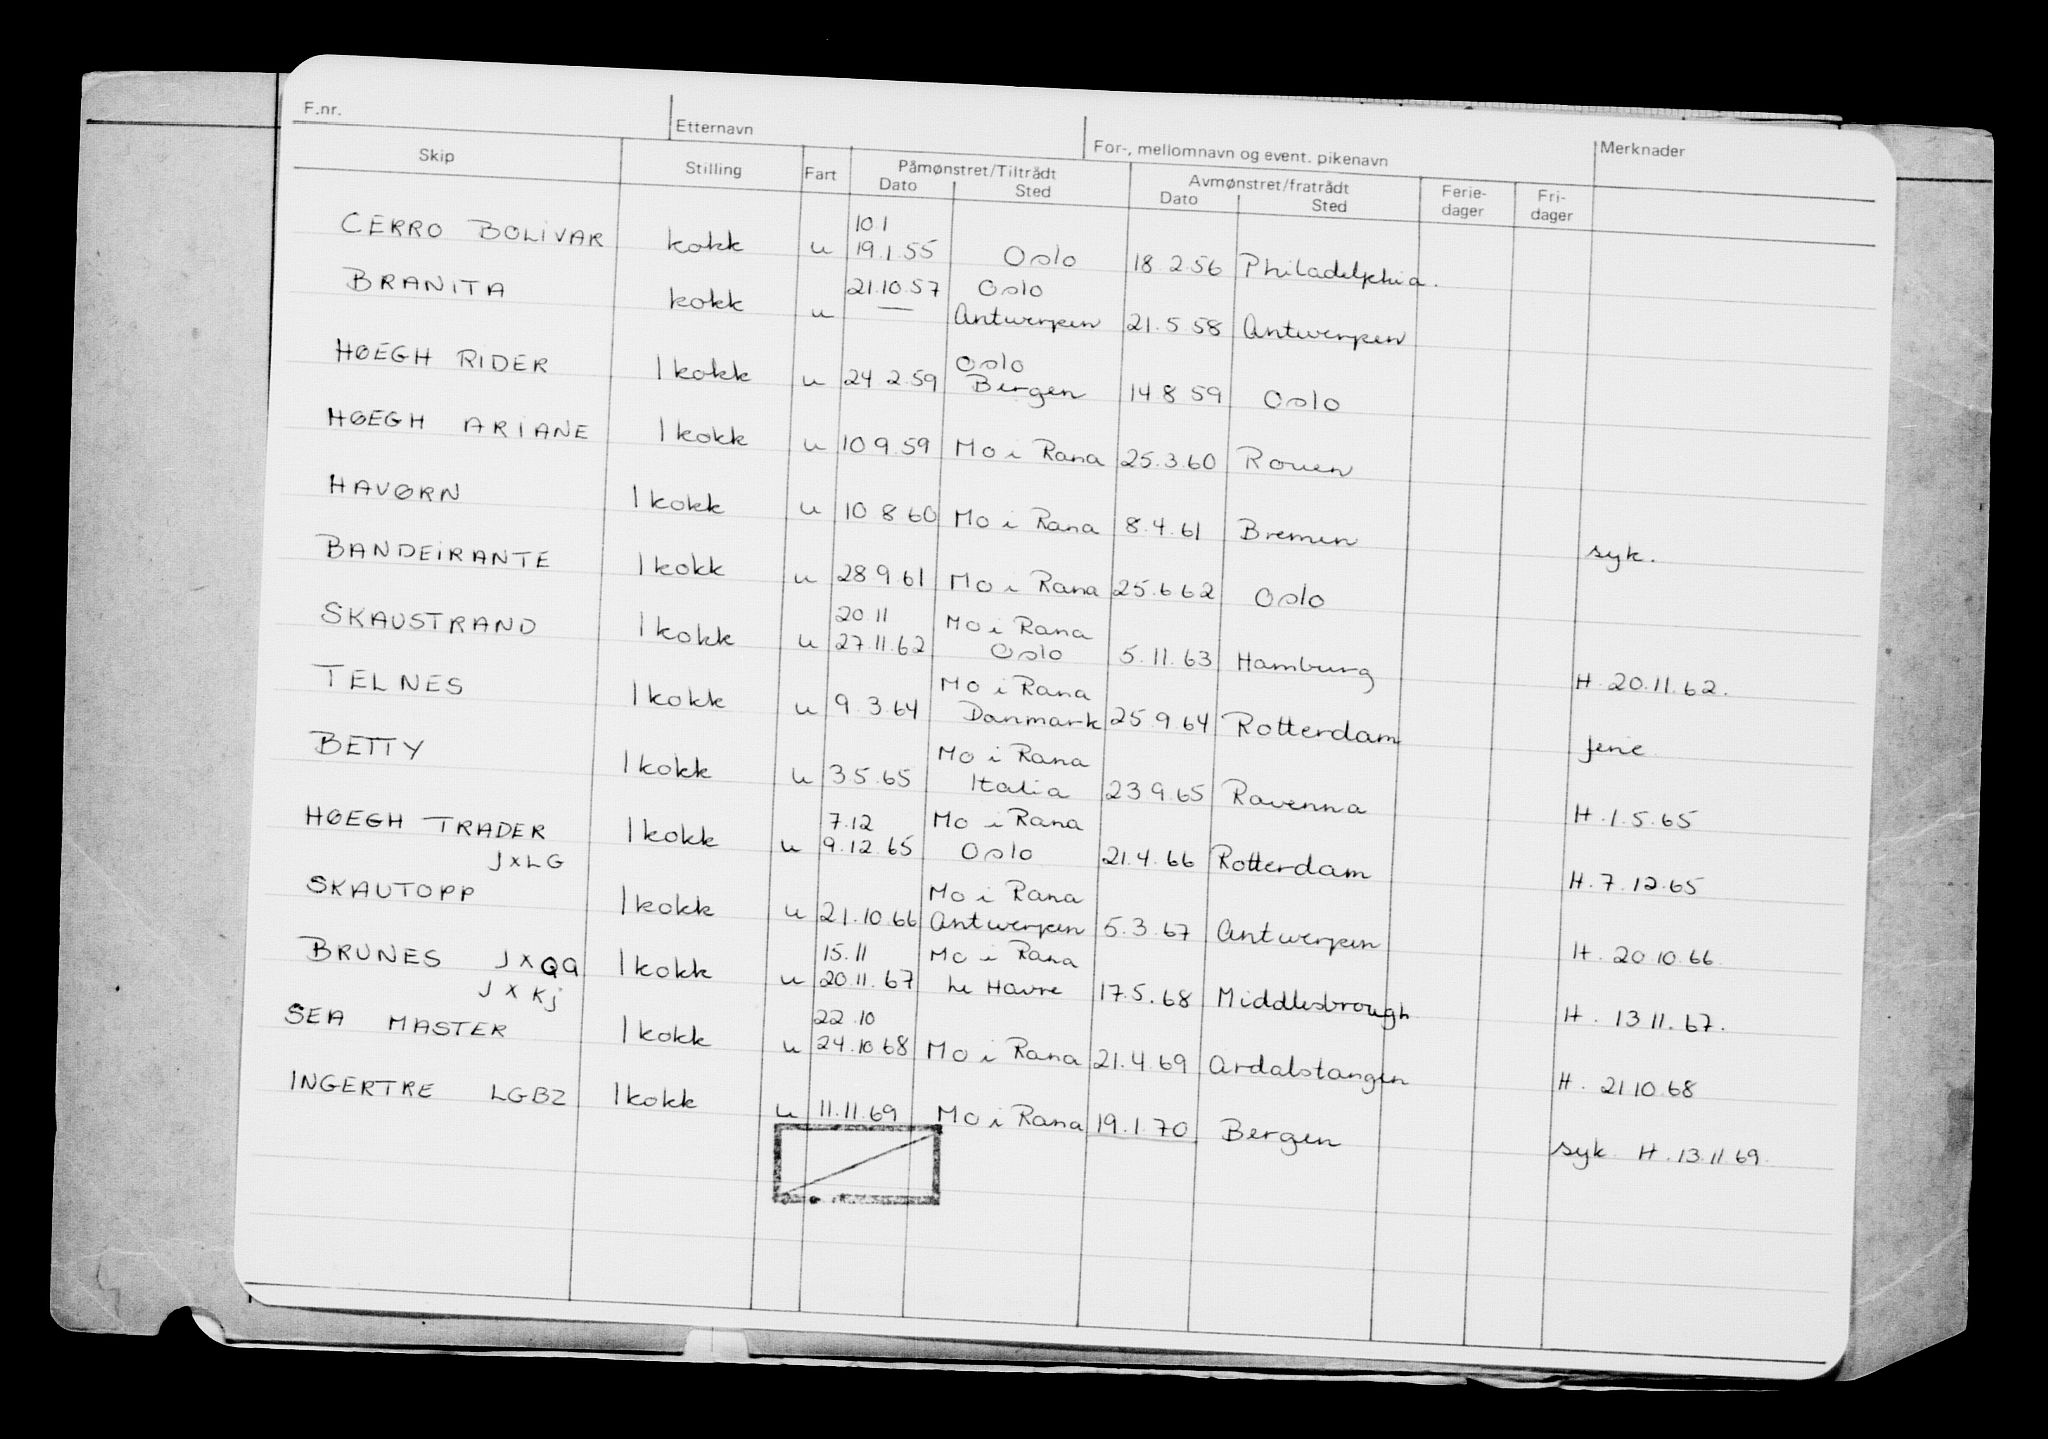 F.nr. Etternavn For-, mellomnavn og event. pikenavn Merknader
Skip Stilling Fart Påmønstret/Tiltrådt Avmønstret/fratrådt Ferie- Fri-
Dato Sted Dato Sted dager dager
10 1
CERRO BOLIVAR kokk u 19.1.55 Oslo 18.2.56 Philadelphia.
21.10.57 Oslo
BRANITA kokk u — Antwerpen 21.5.58 Antwerpen
Oslo
HØEGH RIDER 1 kokk u 24 2.59 Bergen 14 8 59 Oslo
HØEGH ARIANE 1 kokk u 10 9.59 Mo i Rana 25.3.60 Rouen
HAVØRN 1 kokk u 10 8 60 Mo i Rana 8.4.61 Bremen syk.
BANDEIRANTE 1 kokk u 28 9 61 Mo i Rana 25.6 62 Oslo
20 11 Mo i Rana
SKAUSTRAND 1 kokk u 27.11.62 Oslo 5.11.63 Hamburg H. 20.11.62.
Mo i Rana
TELNES 1 kokk u 9.3.64 Danmark 25.9 64 Rotterdam ferie
Mo i Rana
BETTY 1 kokk u 3 5.65 Italia 23 9.65 Ravenna H.1.5.65
7.12 Mo i Rana
HØEGH TRADER 1 kokk u 9.12.65 Oslo 21.4.66 Rotterdam H.7.12.65
JXLG
Mo i Rana
SKAUTOPP 1 kokk u 21.10.66 Antwerpen 5.3.67 Antwerpen H. 20 10.66.
15.11 Mo i Rana
BRUNES JXQQ 1 kokk u 20.11.67 Le Havre 17.5.68 Middlesbrough H. 13 11.67.
JXKJ
22.10
SEA MASTER 1 kokk u 24.10 68 Mo i Rana 21.4.69 Ardalstangen H. 21.10.68
INGERTRE LGBZ 1 kokk u 11.11.69 Mo i Rana 19.1.70 Bergen syk H.13.11 69.